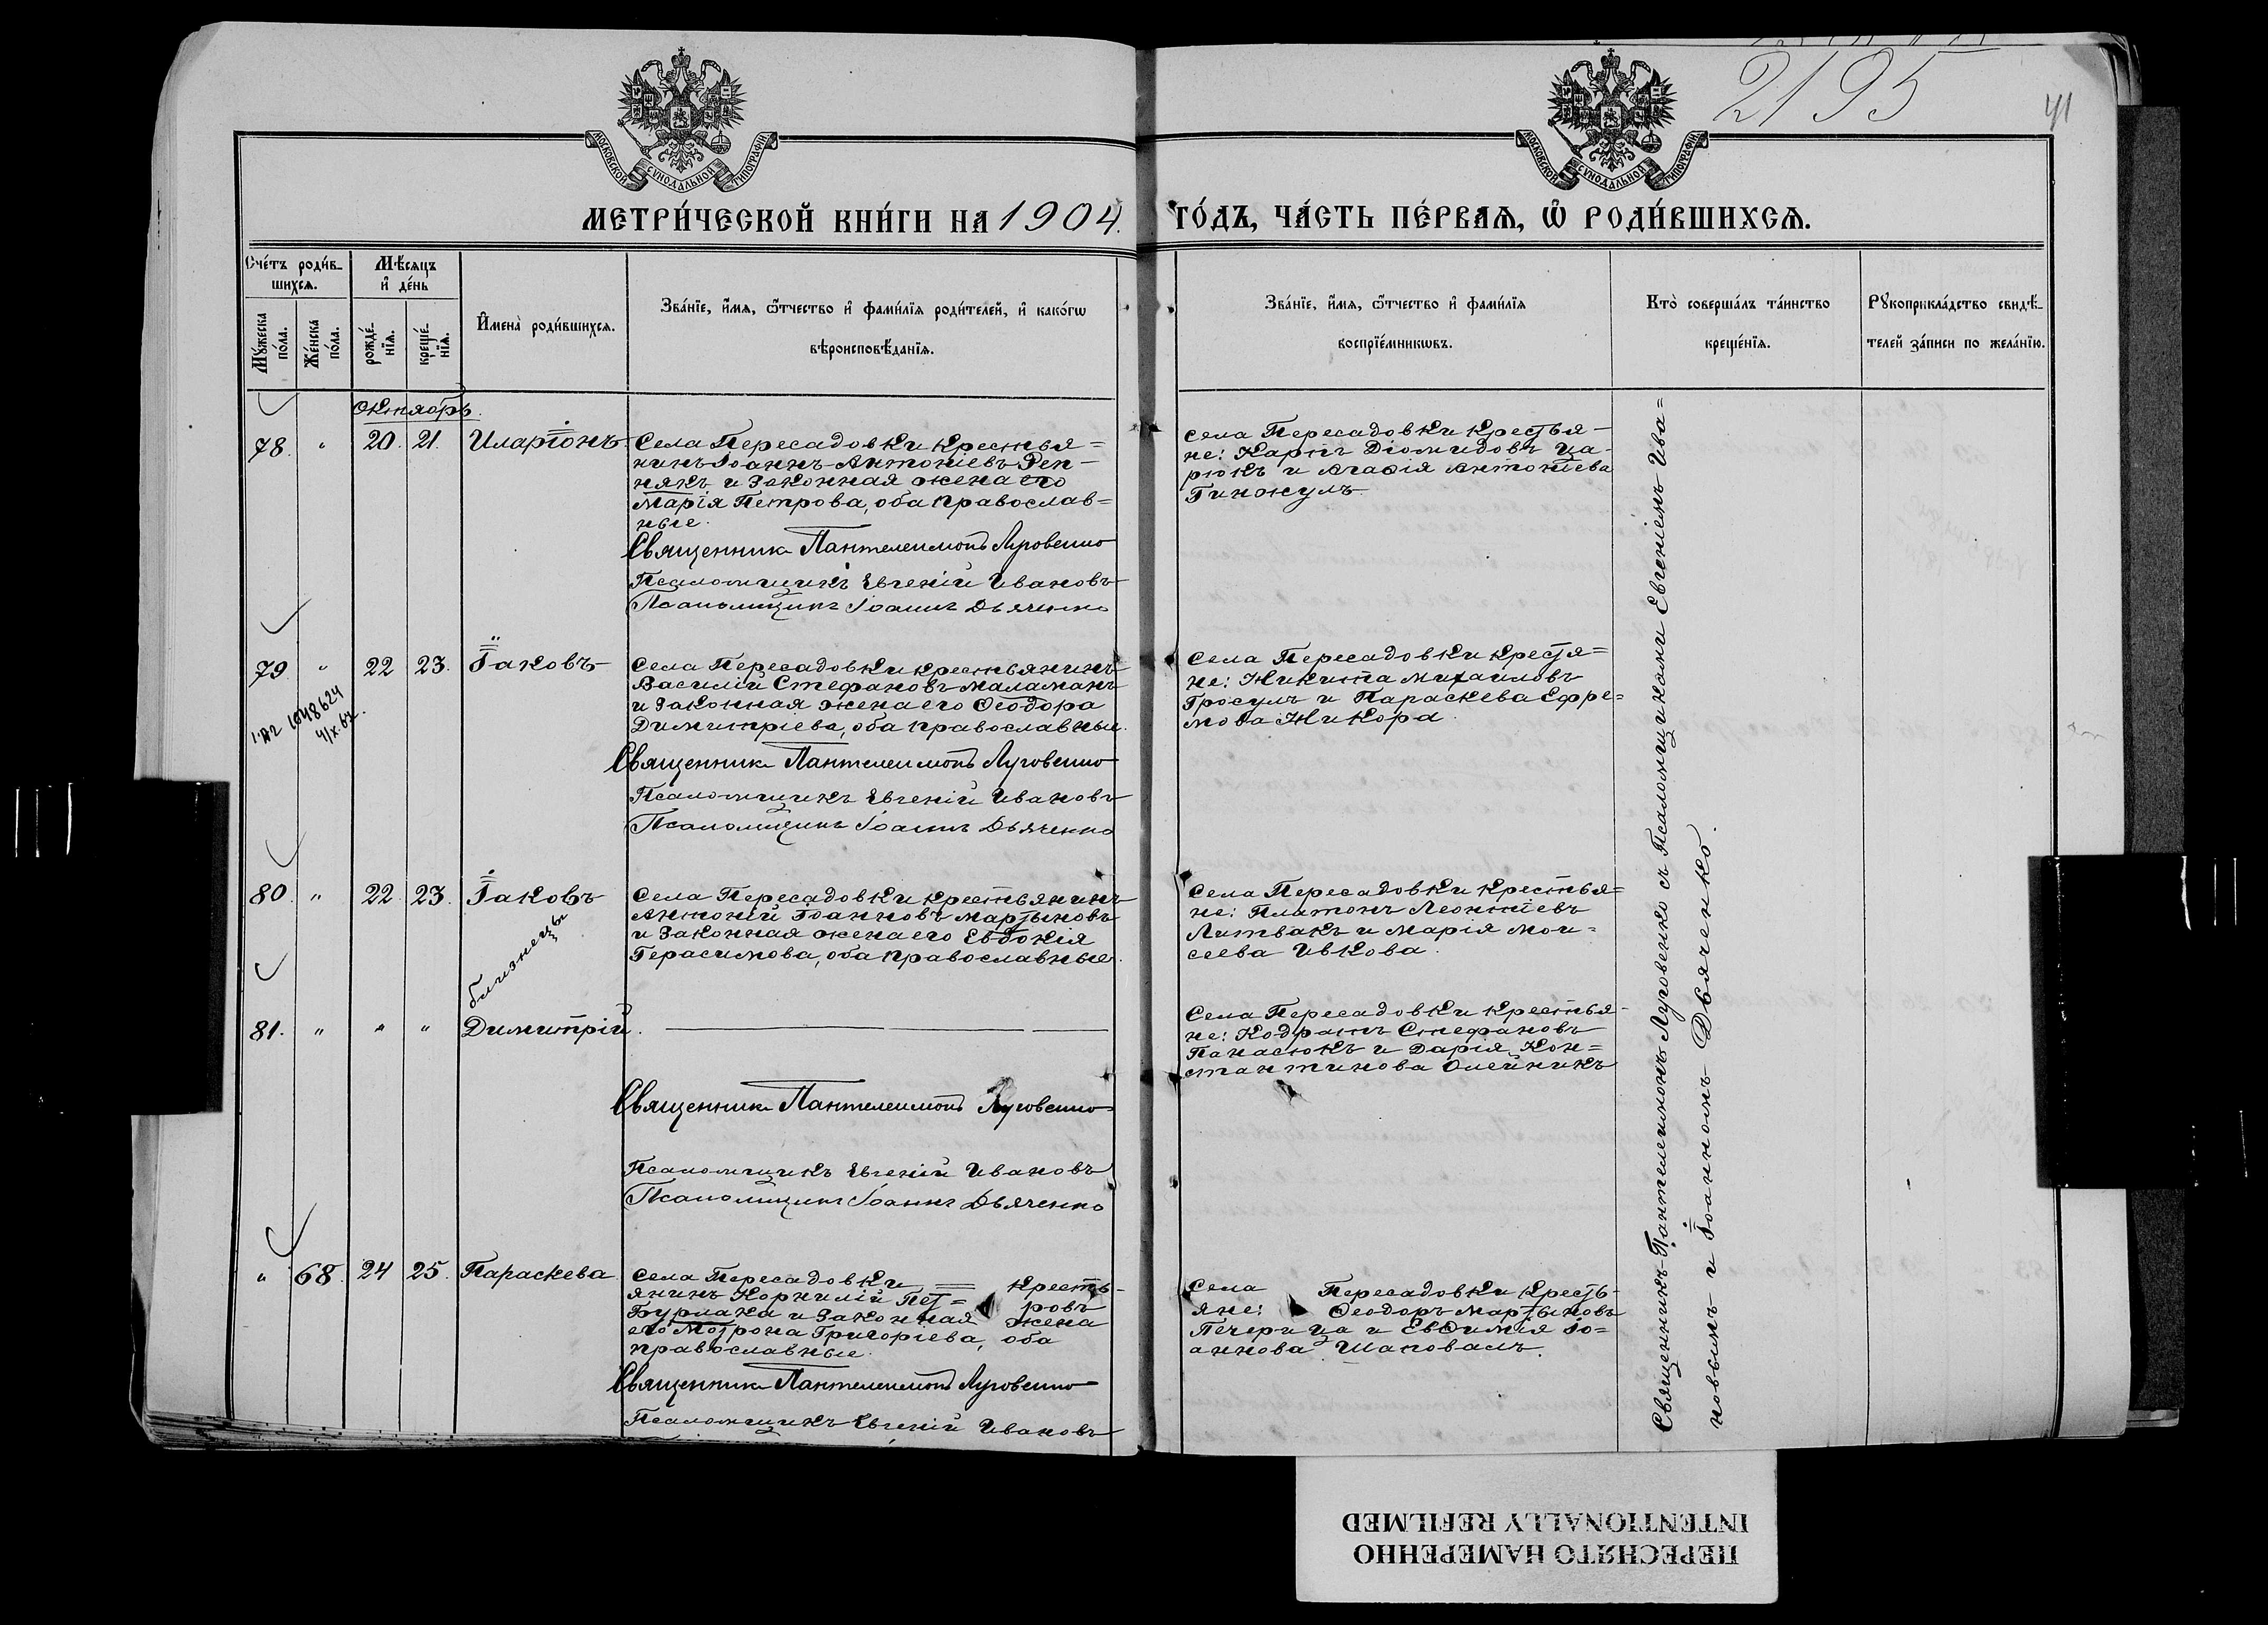 2195
41
МОСКОВСКОЙ СѴНОДАЛЬНОЙ ТИПОГРАФІИ
МОСКОВСКОЙ СѴНОДАЛЬНОЙ ТИПОГРАФІИ
МЕТРИ́ЧЕСКОЙ КНИ́ГИ НА 1904.
ГО́ДЪ, ЧА́СТЬ ПЕ́РВАѦ, Ѿ РОДИ́ВШИХСѦ.
Сче́тъ роди́в-
шихсѧ.
Мꙋ́жеска по́ла.
Же́нска по́ла.
Мѣ́сѧцъ
и҆ де́нь
рожде́-
нїѧ.
креще́-
нїѧ.
И҆мена̀ роди́вшихсѧ.
Зва́нїе, и҆́мѧ, ѻ҆́тчество и҆ фами́лїѧ роди́телей, и҆ како́гѡ
вѣроисповѣ́данїѧ.
Зва́нїе, и҆́мѧ, ѻ҆́тчество и҆ фами́лїѧ
воспрїе́мникѡвъ.
Кто̀ соверша́лъ та́инство
креще́нїѧ.
Рꙋкоприкла́дство свидѣ́-
телей за́писи по жела́нїю.
Октябрь.
78. " 20. 21. Иларіонъ
Села Пересадовки крестья=
нинъ Іоаннъ Антоніевъ Реп-
някъ и законная жена его
Марія Петрова, оба православ=
ные.
Священникъ Пантелеимонъ Луговенко
Псаломщикъ Евгеній Ивановъ
Псаломщикъ Іоаннъ Дьяченко
Села Пересадовки крестья-
не: Карпъ Діомидовъ Ца-
рюкъ и Агафія Антоніева
Гинжулъ.
79. " 22 23. Іаковъ
4/X.67.
Села Пересадовки крестьянинъ
Василій Стефановъ Маламанъ
и законная жена его Ѳеодора
Димитріева, оба православные.
Священникъ Пантелеимонъ Луговенко
Псаломщикъ Евгеній Ивановъ
Псаломщикъ Іоаннъ Дьяченко
Села Пересадовки крестья=
не: Никита Михаиловъ
Гросулъ и Параскева Ефре=
мова Жикора.
80. " 22 23. Іаковъ
близнецы
Села Пересадовки крестьянинъ
Антоній Іоанновъ Мартыновъ
и законная жена его Евдокія
Герасимова, оба православные.
Села Пересадовки крестья=
не: Платонъ Леонтіевъ
Литвакъ и Марія Мои=
сеева Ивкова.
81. " " " Димитрій.
Священникъ Пантелеимонъ Луговенко
Псаломщикъ Евгеній Ивановъ
Псаломщикъ Іоаннъ Дьяченко
Села Пересадовки крестья-
не: Кодратъ Стефановъ
Панасюкъ и Дарія Кон=
стантинова Олейникъ
" 68. 24 25. Параскева.
Села Пересадовки кресть-
янинъ Корнилій Пет= ровъ
Бурлака и законная жена
его Мотрона Григоріева, оба
православные.
Священникъ Пантелеимонъ Луговенко
Псаломщикъ Евгеній Ивановъ
Села Пересадовки кресть-
яне: Ѳеодоръ Мартыновъ
Печерица и Евфимія Іо=
аннова Шаповалъ.
Священникъ Пантелеимонъ Луговенко съ Псаломщиками Евгеніемъ Ива=
новымъ и Іоанномъ Дьяченко.
ПЕРЕСНЯТО НАМЕРЕННО
INTENTIONALLY REFILMED